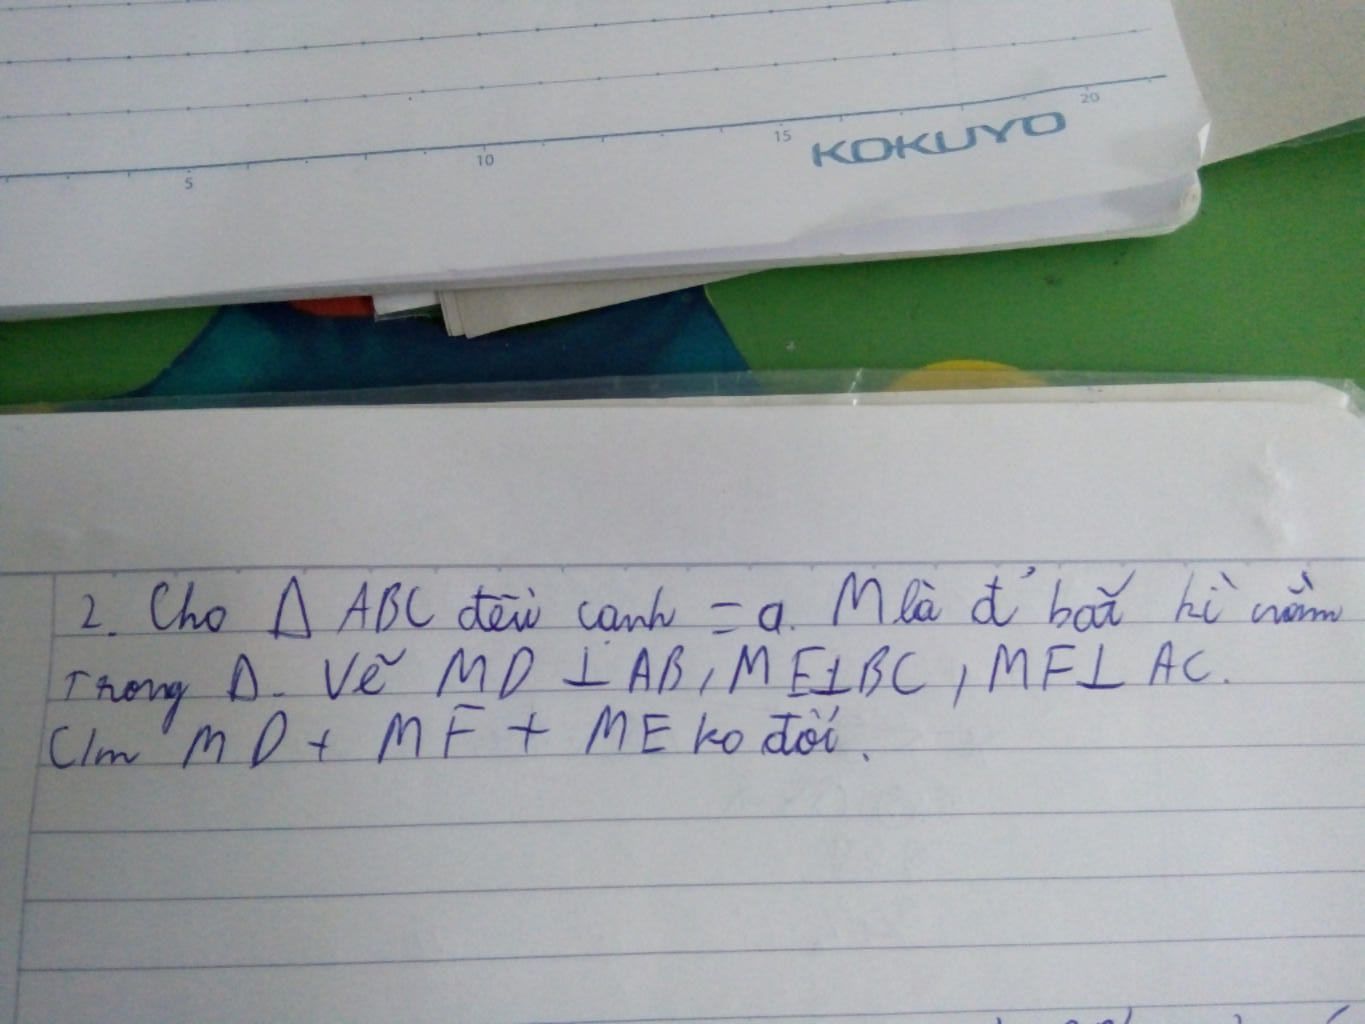 20
15
KOKUYO
10
5
2. Cho Δ ABC đều cạnh = a. M là đ' bất kì nằm
trong Δ. Vẽ MD ⊥ AB, ME ⊥ BC, MF ⊥ AC.
C/m MD + MF + ME ko đổi.